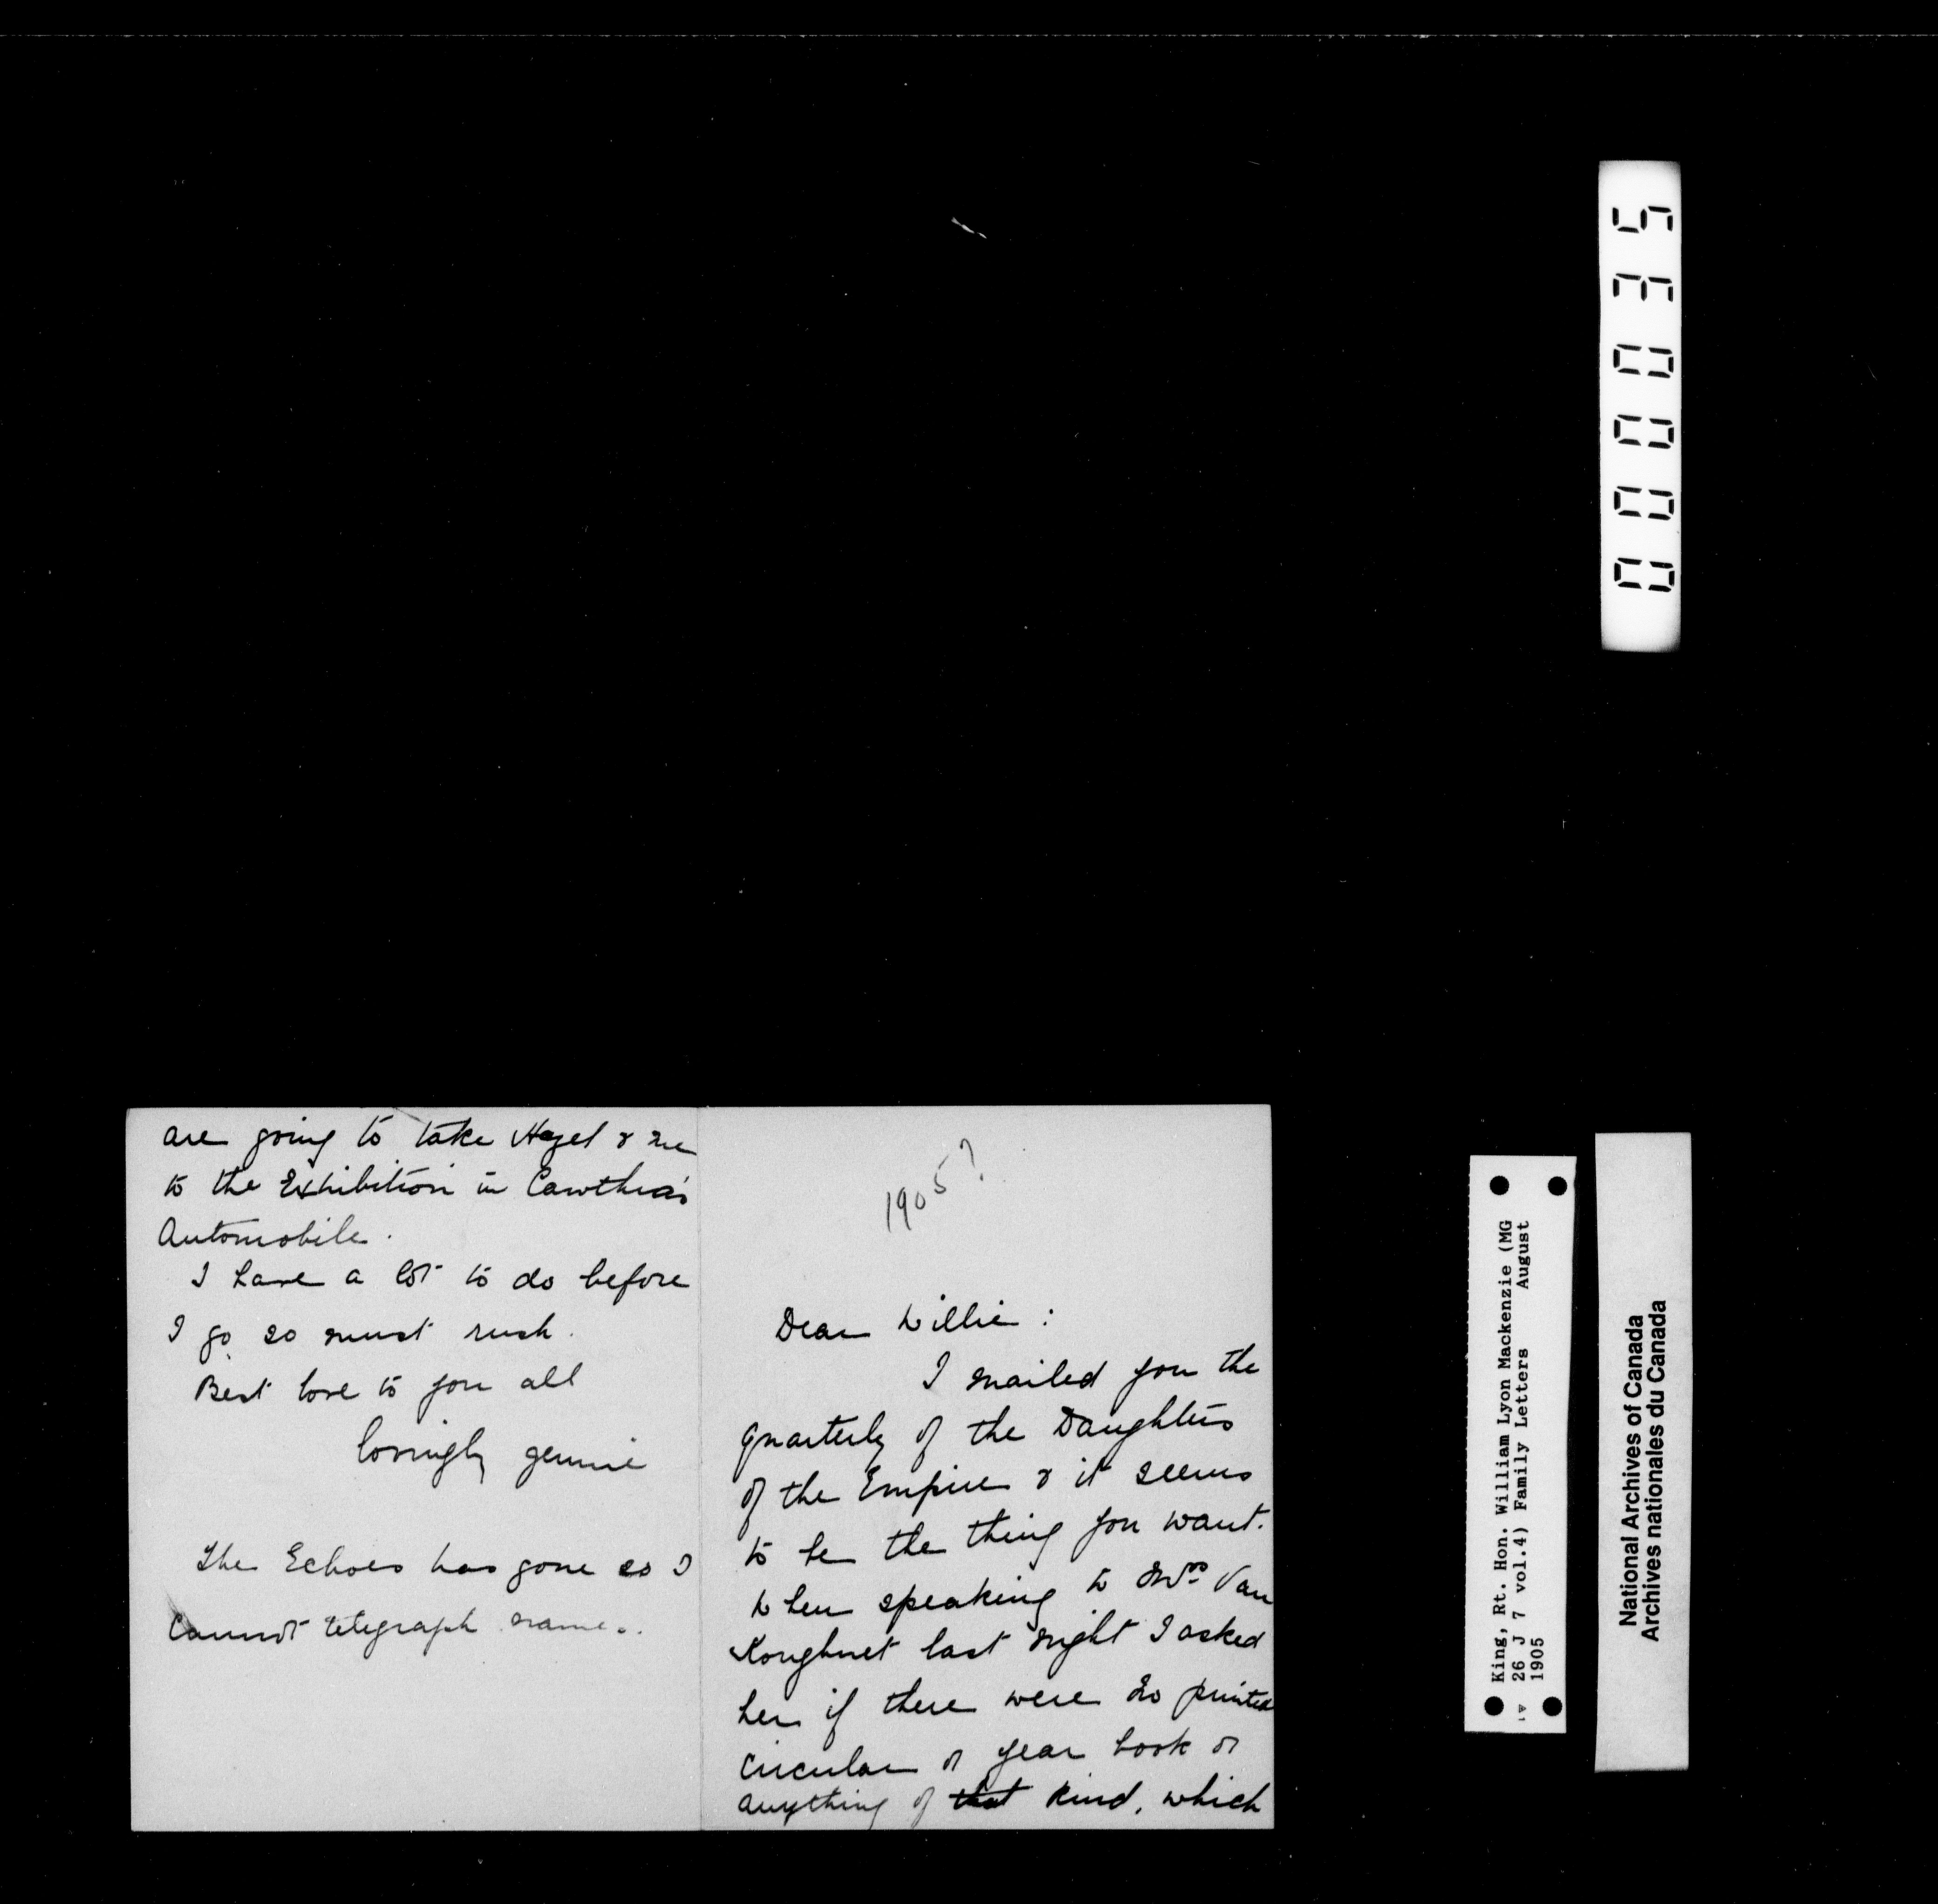 are going to take Hazel & me
to the Exhibition in Cawthra's
Automobile.
I have a lot to do before
I go so must rush.
Best love to you all
lovingly Jennie
The Echoes has gone so I
Cannot telegraph name.
1905?
Dear Willie:
I mailed you the
Quarterly of the Daughters
of the Empire & it seems
to be the thing you want.
When speaking to Mrs Van
Koughnet last night I asked
her if there were no printed
circular or year book or
anything of that kind, which
000035
King, Rt. Hon. William Lyon Mackenzie (MG
26 J 7 vol.4) Family Letters August
1905
National Archives of Canada
Archives nationales du Canada